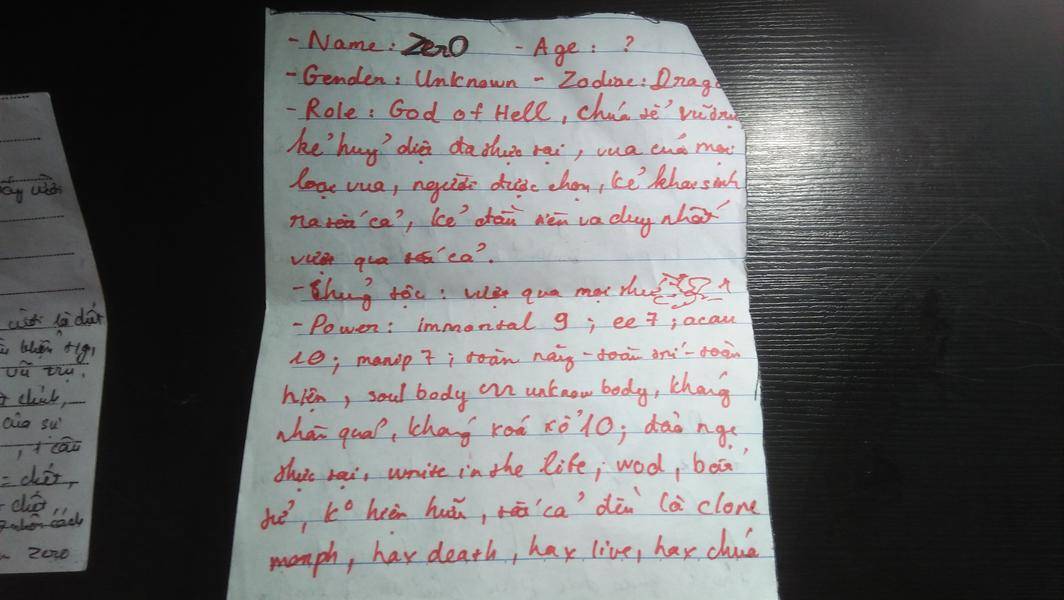 - Name: ZerO - Age : ?
- Gender : Unknown - Zodiac : Drago
- Role : God of Hell, chúa tể vũ trụ
kẻ huỷ diệt đa thực tại, vua của mọi
loại vua, người được chọn, kẻ khai sinh
ra tất cả, kẻ đầu tiên và duy nhất
vượt qua tất cả.
- Chủng tộc : vượt qua mọi thứ
- Power : immortal 9 ; ee 7 ; acau
10 ; manip 7 ; toàn năng - toàn trí - toàn
hiện , soul body unknow body, kháng
nhân quả, kháng xoá xổ 10 ; đảo ngc
thực tại, write in the life, wod, bất
tử, k° hiện hữu, tất cả đều là clone
morph, hax death, hax live, hax chúa
cười là chết
vũ trụ.
của sự
, 1 câu
= chết,
chết,
nhân cách
Zero